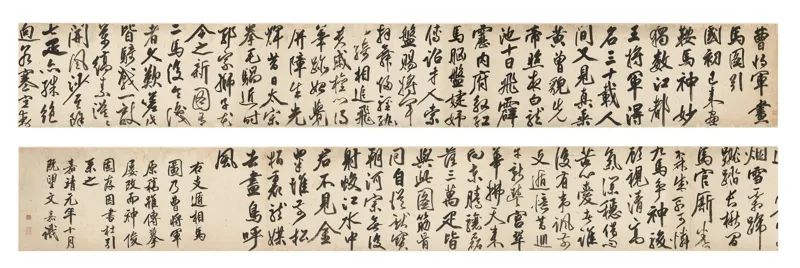 曹將軍畫
馬圖引
國初已來畫
鞍馬神妙
獨數江都
王將軍得
名三十載人
間又見真乘
黃曾貌先
帝照夜白龍
池十日飛霹
靂內府殷紅
馬腦盤婕妤
傳詔才人索
盤賜將軍
拜舞歸輕紈
細綺相追飛
貴戚權門得
筆跡始覺
屏障生光
輝昔日太宗
拳毛騧近時
郭家獅子花
今之新圖有
二馬復令識
者久歎嗟此
皆騎戰一敵
萬縞素漠漠
開風沙其餘
七匹亦殊絕
迥若寒空動
煙雪霜蹄
蹴踏長楸間
馬官廝養
森成列可憐
九馬爭神駿
顧視清高
氣深穩借問
苦心愛者誰
後有韋諷前
支遁憶昔巡
幸新豐宮翠
華拂天來
向東騰驤磊
落三萬匹皆
與此圖筋骨
同自從獻寶
朝河宗無復
射蛟江水中
君不見金
粟堆前松
柏裏龍媒
去盡鳥呼
風
右支遁相馬
圖乃曹將軍
原稿雖傳摹
屢改而神俊
固存因書杜引
系之
嘉靖元年十月
既望文嘉識